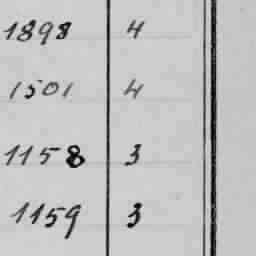 1898 4
1501 4
1158 3
1159 3